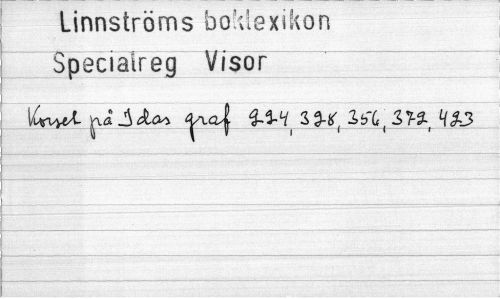 Linnströms boklexikon
Specialreg Visor
Korset på Idas graf 224, 328, 356, 372, 423